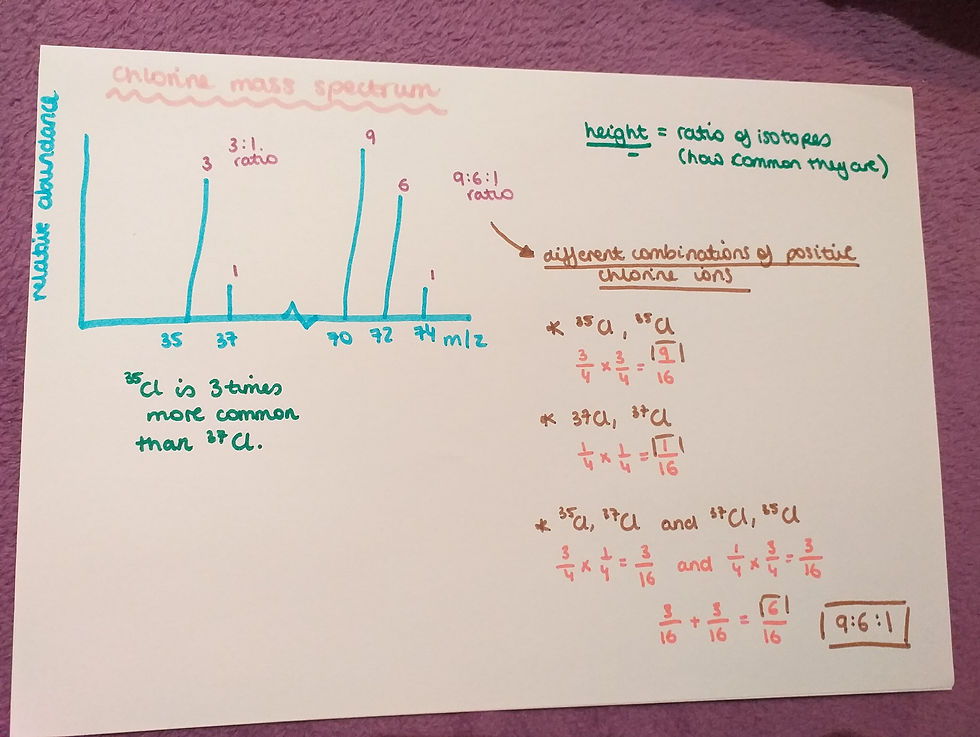 chlorine mass spectrum
relative abundance
3
3:1
ratio
1
9
6
9:6:1
ratio
1
35 37 70 72 74 m/z
³⁵Cl is 3 times
more common
than ³⁷Cl.
height = ratio of isotopes
(how common they are)
different combinations of positive
chlorine ions
* ³⁵Cl, ³⁵Cl
3/4 × 3/4 = 9/16
* 37Cl, ³⁷Cl
1/4 × 1/4 = 1/16
* ³⁵Cl, ³⁷Cl and ³⁷Cl, ³⁵Cl
3/4 × 1/4 = 3/16 and 1/4 × 3/4 = 3/16
3/16 + 3/16 = 6/16
9:6:1